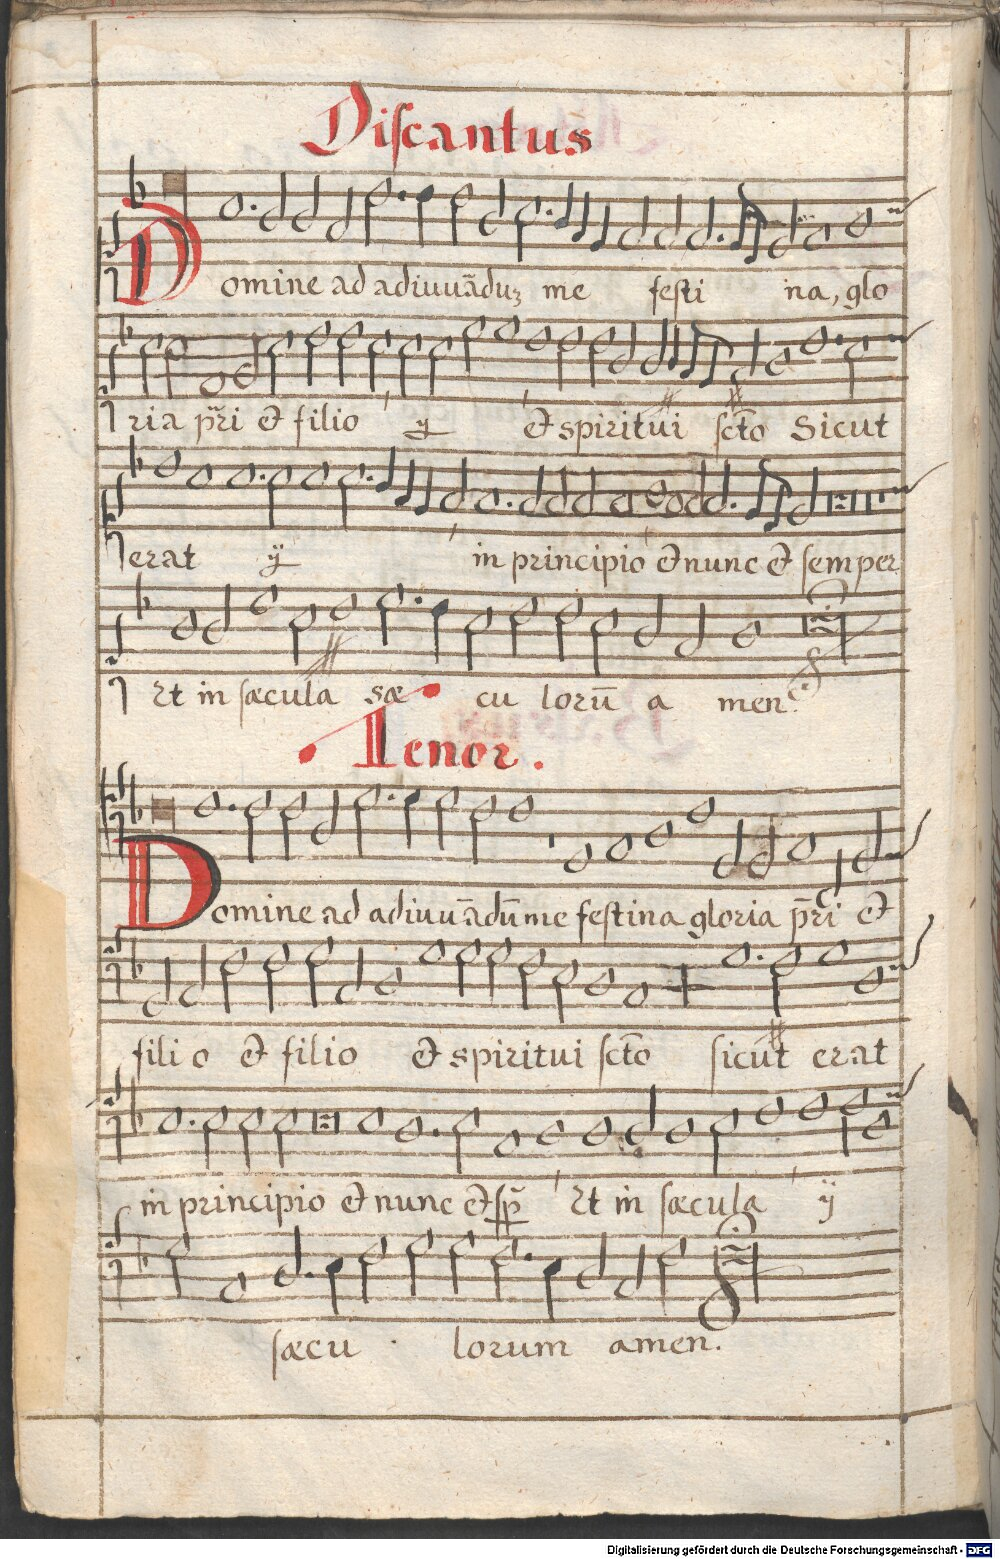 Discantus
Domine ad adiuuāduʒ me festi na, glo
ria pr̄i et filio ij et spiritui sct̄o Sicut
erat ij in principio et nunc et semper
et in sæcula sæ cu lorū a men.
Tenor.
Domine ad adiuuādū me festina gloria pr̄i et
fili o et filio et spiritui sct̄o sicut erat
in principio et nunc et sp̄ et in sæcula ij
sæcu lorum amen.
Digitalisierung gefördert durch die Deutsche Forschungsgemeinschaft - DFG